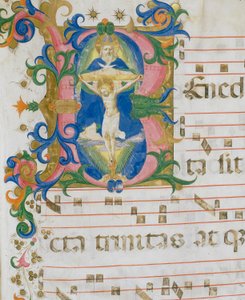 Bened
ta sit
cta trinitas at q